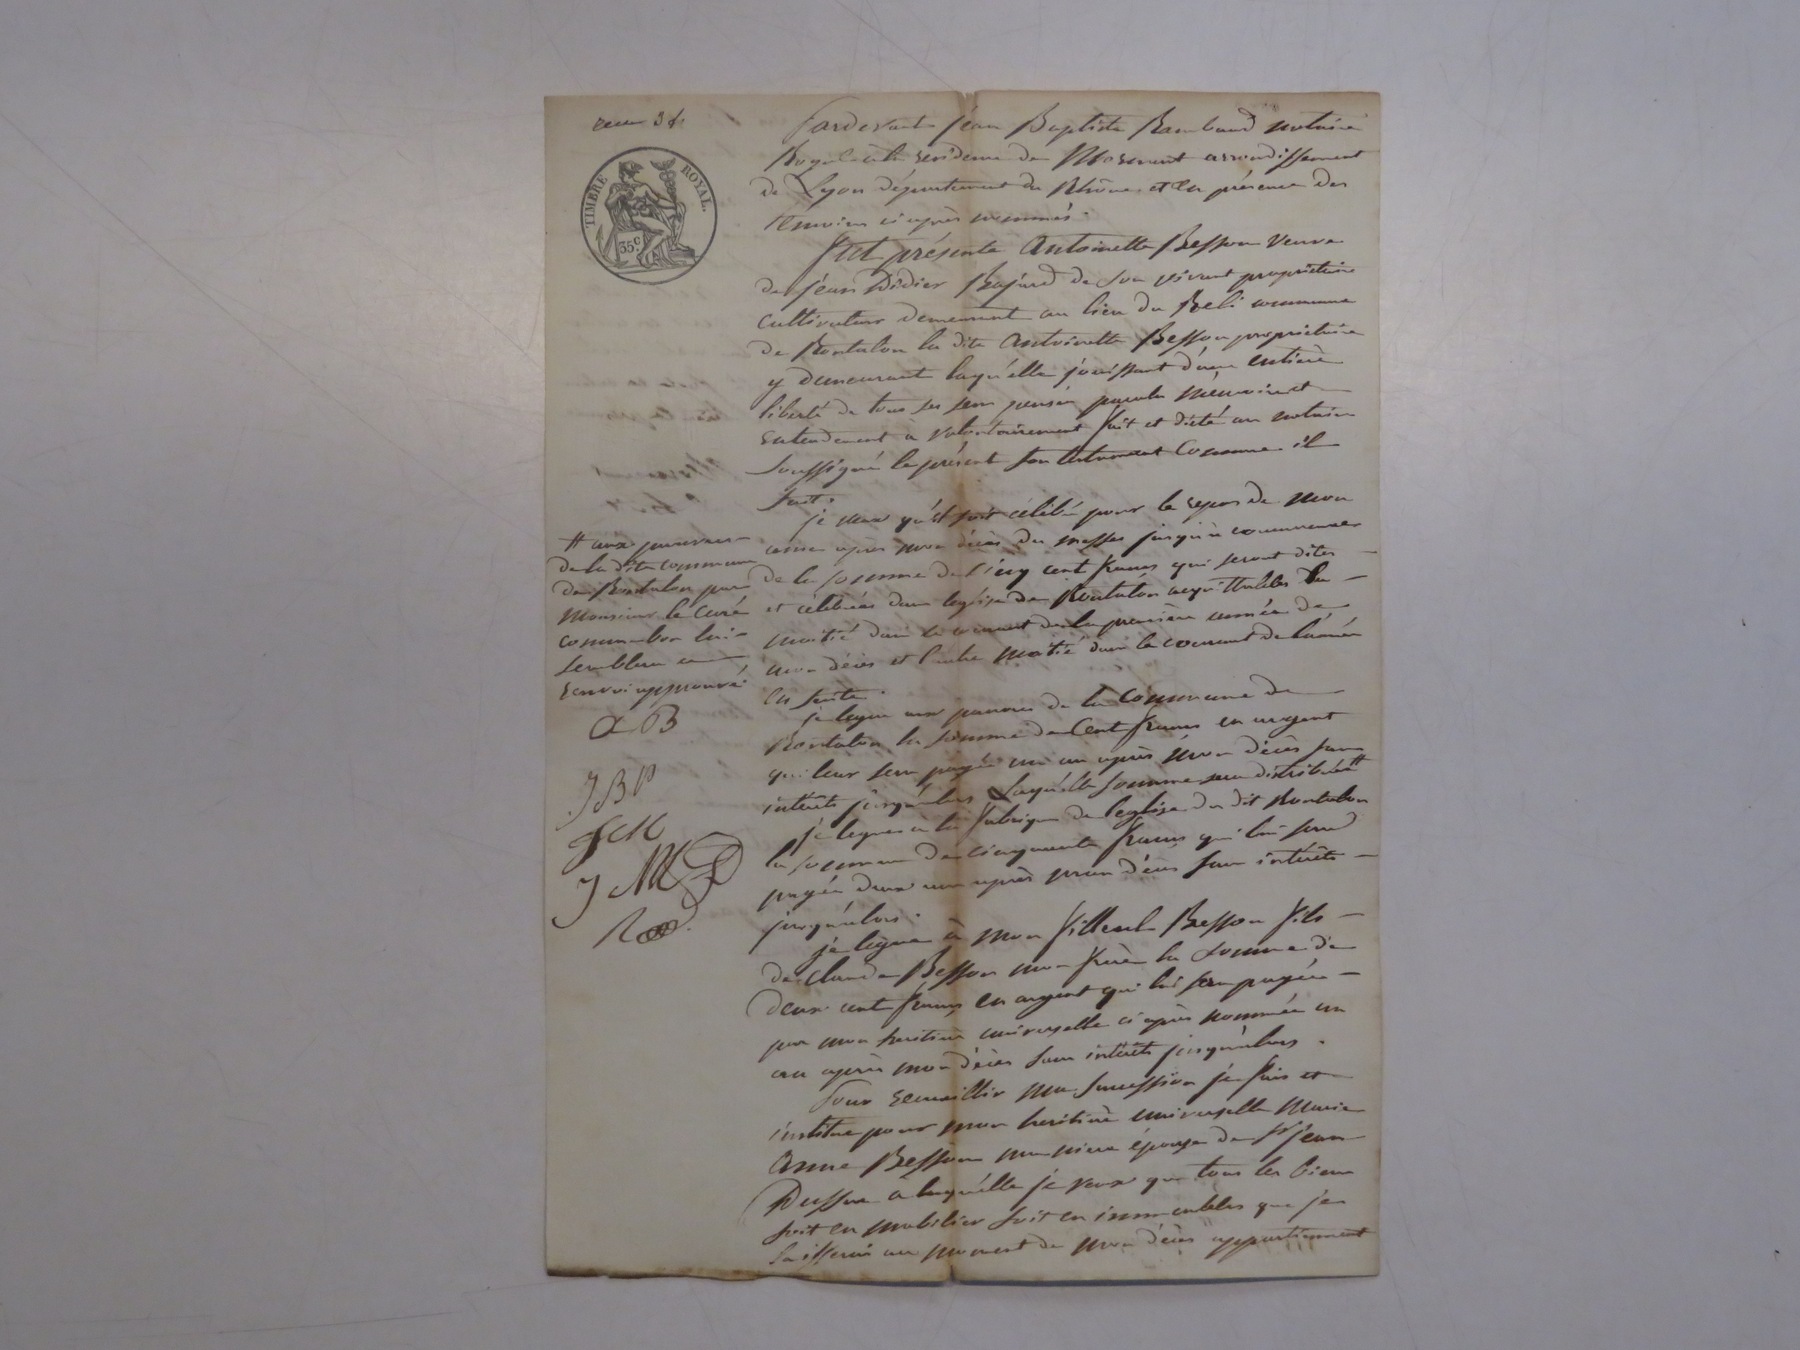 TIMBRE ROYAL.
35c
Pardevant jean Baptiste Rambaud notaire
Royal à la residence de Mornant arrondissement
de Lyon département du Rhône et en présence des
temoins ci après nommés.
Fut présente Antoinette Besson veuve
de jean Didier Bajard de son vivant propriétaire
cultivateur demeurant au lieu du commune
de Rontalon la dite Antoinette Besson propriétaire
y demeurant laquélle jouissant d'une entière
liberté de tous ses sens pensée parole mémoire et
entendement à volontairement fait et dicté au notaire
soussigné le présent son testament Comme il
suit.
je veux qu'il soit célébré pour le repos de mon
ame après mon décès des messes jusqu'à concurrence
de la somme de Cinq cent francs qui seront dites
et célébrées dans leglise de Rontalon acquittables la
moitié dans le courant de la première année de
mon décès et l'autre moitié dans le courant de l'année
en suite.
je legue aux pauvres de la Commune de
Rontalon la somme de Cent francs en argent
qui leur sera payée un an après mon décès sans
intérêts jusqu'alors Laquélle somme sera distribuée #
je legue à la fabrique de leglise du dit Rontalon
la somme de cinquante francs qui lui sera
payée deux ans après mon décès sans intérêts
jusqu'alors.
je legue à mon filleul Besson fils
de claude Besson mon frère la somme de
deux cent francs en argent qui lui sera payée
par mon heritière universelle ci après nommée un
an après mon décès sans intérêts jusqu'alors.
Pour recueillir ma succession je fais et
institue pour mon heritière universelle Marie
Anne Besson ma niece épouse de Sr jean
à laquélle je veux que tous les biens
soit en mobilier soit en immeubles que je
laisserai au moment de mon décès appartiennent
# aux pauvres
de la dite commune
de Rontalon par
Monsieur le Curé
comme bon lui
semblera
renvoi approuvé.
a B
J B P
J M